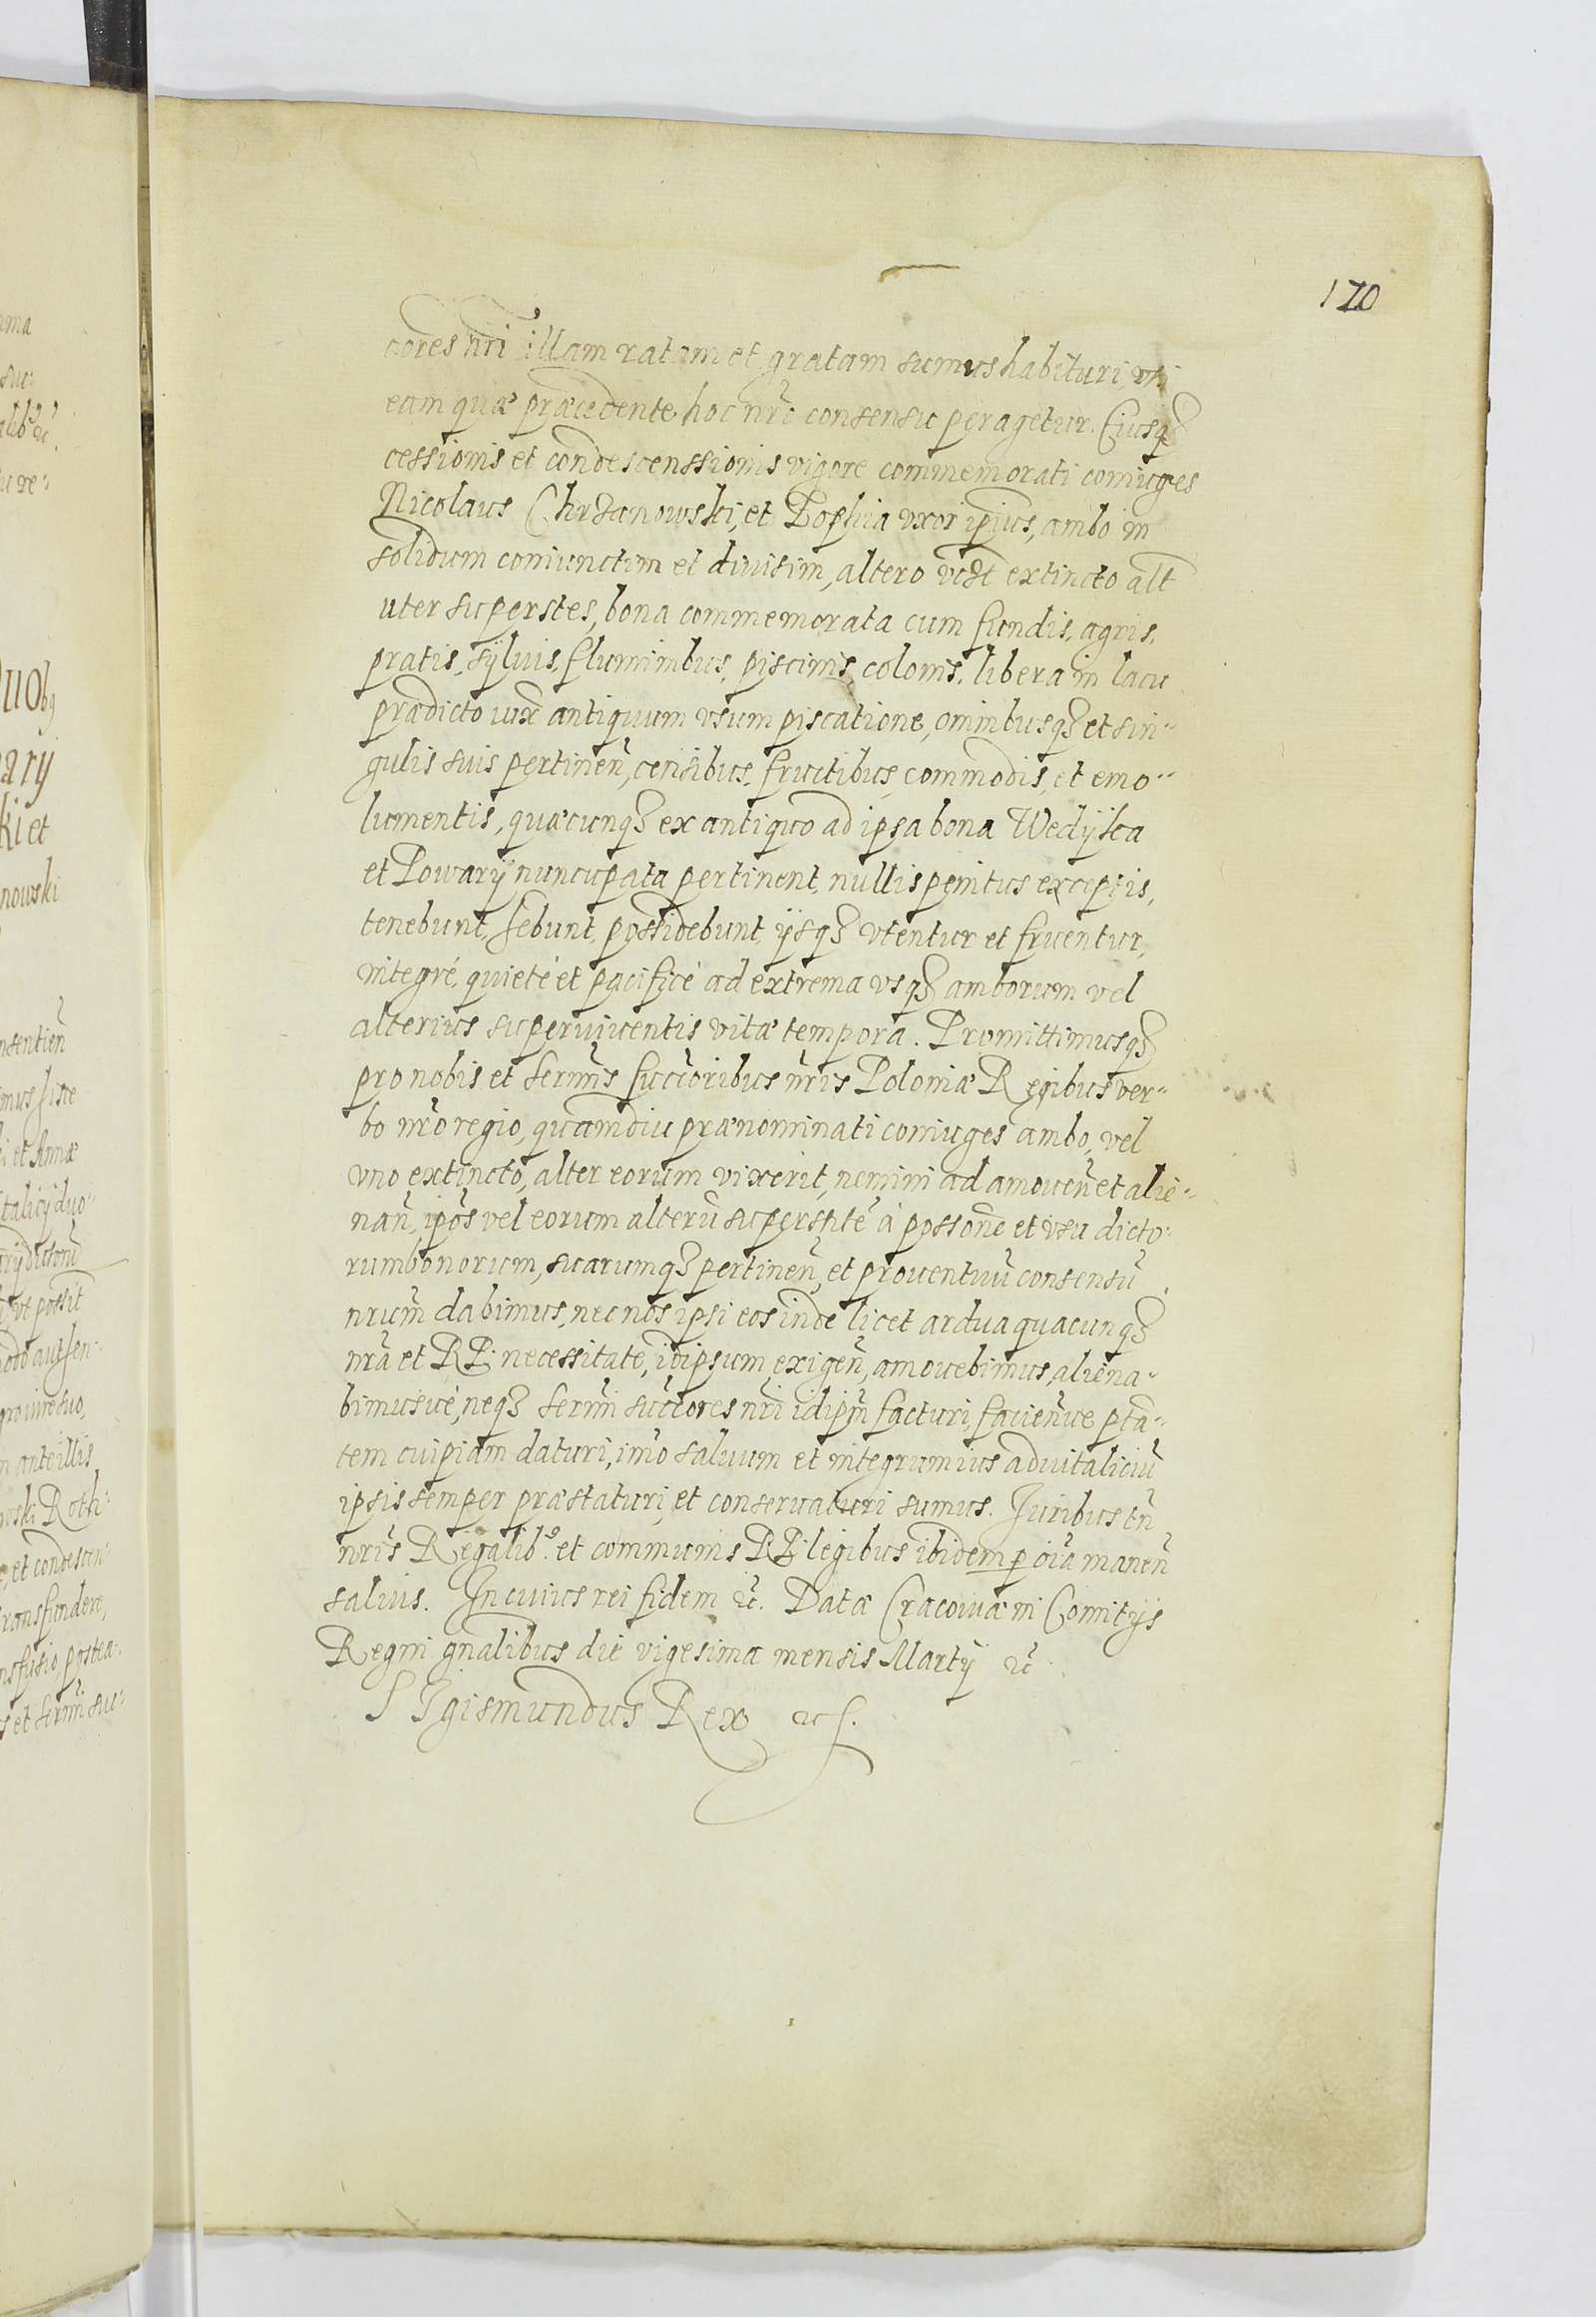 120
cores nri illam ratam et gratam sumus habituri, uti
eam quæ præcedente hoc nro consensu peragetur. Eiusq3
cessionis et condescenssionis vigore commemorati coniuges
Nicolaus Chrzanowski, et Zophia vxor ipius, ambo in
solidum coniunctim et diuisim, altero extincto alt
uter superstes, bona commemorata cum fundis, agris,
pratis, sÿluis, fluminibus, piscinis, colonis, libera in lacu
prædicto iux antiquum vsum piscatione, omnibusq3 et sin¨
gulis suis pertinen, censibus, fructibus, commodis, et emo¨
lumentis, quæcunq3 ex antiquo ad ipsa bona
et Powarÿ nuncupata pertinent, nullis penitus exceptis,
tenebunt, hebunt, possidebunt, ÿsq3 vtentur et fruentur,
integré, quieté et pacificé ad extrema vsq3 amborum vel
alterius superuiuentis vitæ tempora. Promittimusq3
pro nobis et sernis succoribus nris Poloniæ Regibus ver¨
bo nro regio, quamdiu prænominati coniuges ambo, vel
vno extincto, alter eorum vixerit, nemini ad amouen et alie¨
nan, ipos vel eorum alteru superstite à possone et vsu dicto:
rum bonorum, suarumq3 pertinen, et prouentuu consensu
nrum dabimus, nec nos ipsi eos inde licet ardua quacunq3
nra et RP: necessitate, idipsum exigen, amouebimus, aliena¨
bimusue, neq3 sermi succores nri idipm facturi, faciendue pta¨
tem cuipiam daturi, imo saluum et integrum ius aduitaliciu
ipsis semper præstaturi, et conseruaturi sumus. Juribus tn
nris Regalib9. et communis RP: legibus ibidem p oia manen
saluis. In cuius rei fidem etc. Datæ Cracouiæ in Comitÿs
Regni gnalibus die vigesima mensis Martÿ etc
SIgismundus Rex etc